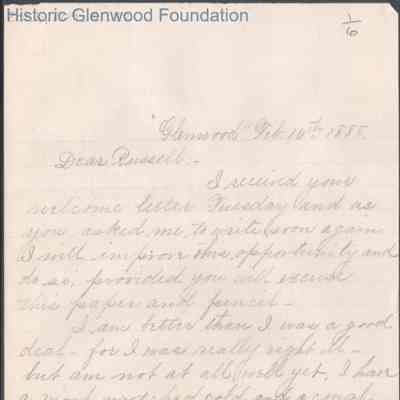 Historic Glenwood Foundation
1/6
"Glenwood" Feb. 10th 1888.
Dear Russell. -
I received your
welcome letter Tuesday and as
you asked me to write soon again
I will improve the opportunity and
do so, provided you will excuse
this paper and pencil -
I am better than I was a good
deal - for I was really right ill -
but am not at all well yet, I have
a most wretched cold and